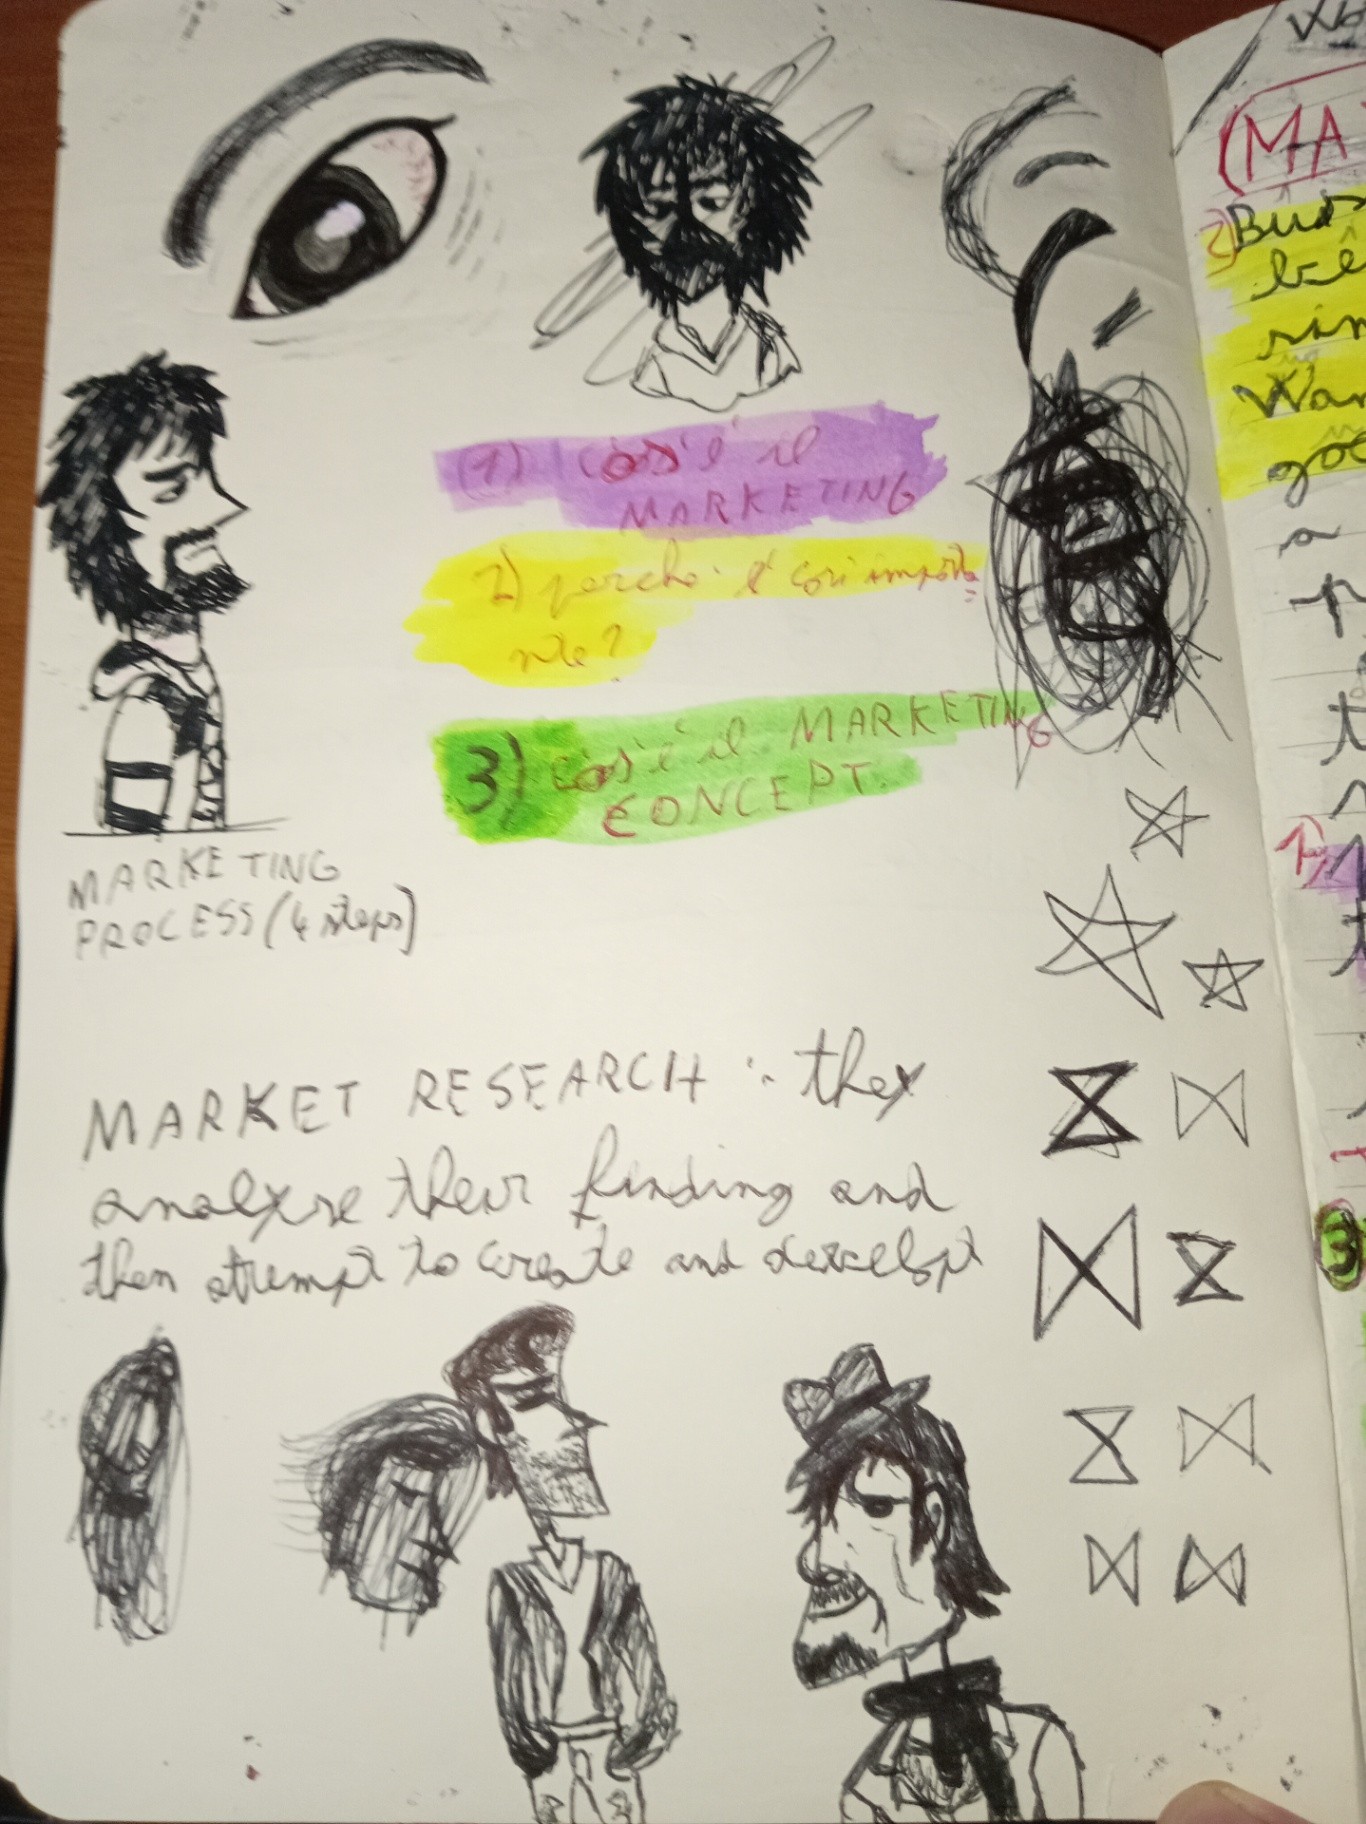 (1) cos'è il
MARKETING
2) perche è così importa
nte?
3) cos'è il MARKETING
CONCEPT.
MARKETING
PROCESS (4 steps)
MARKET RESEARCH: they
analyse their finding and
then attempt to create and
(MA
2) Bus
Wan
3